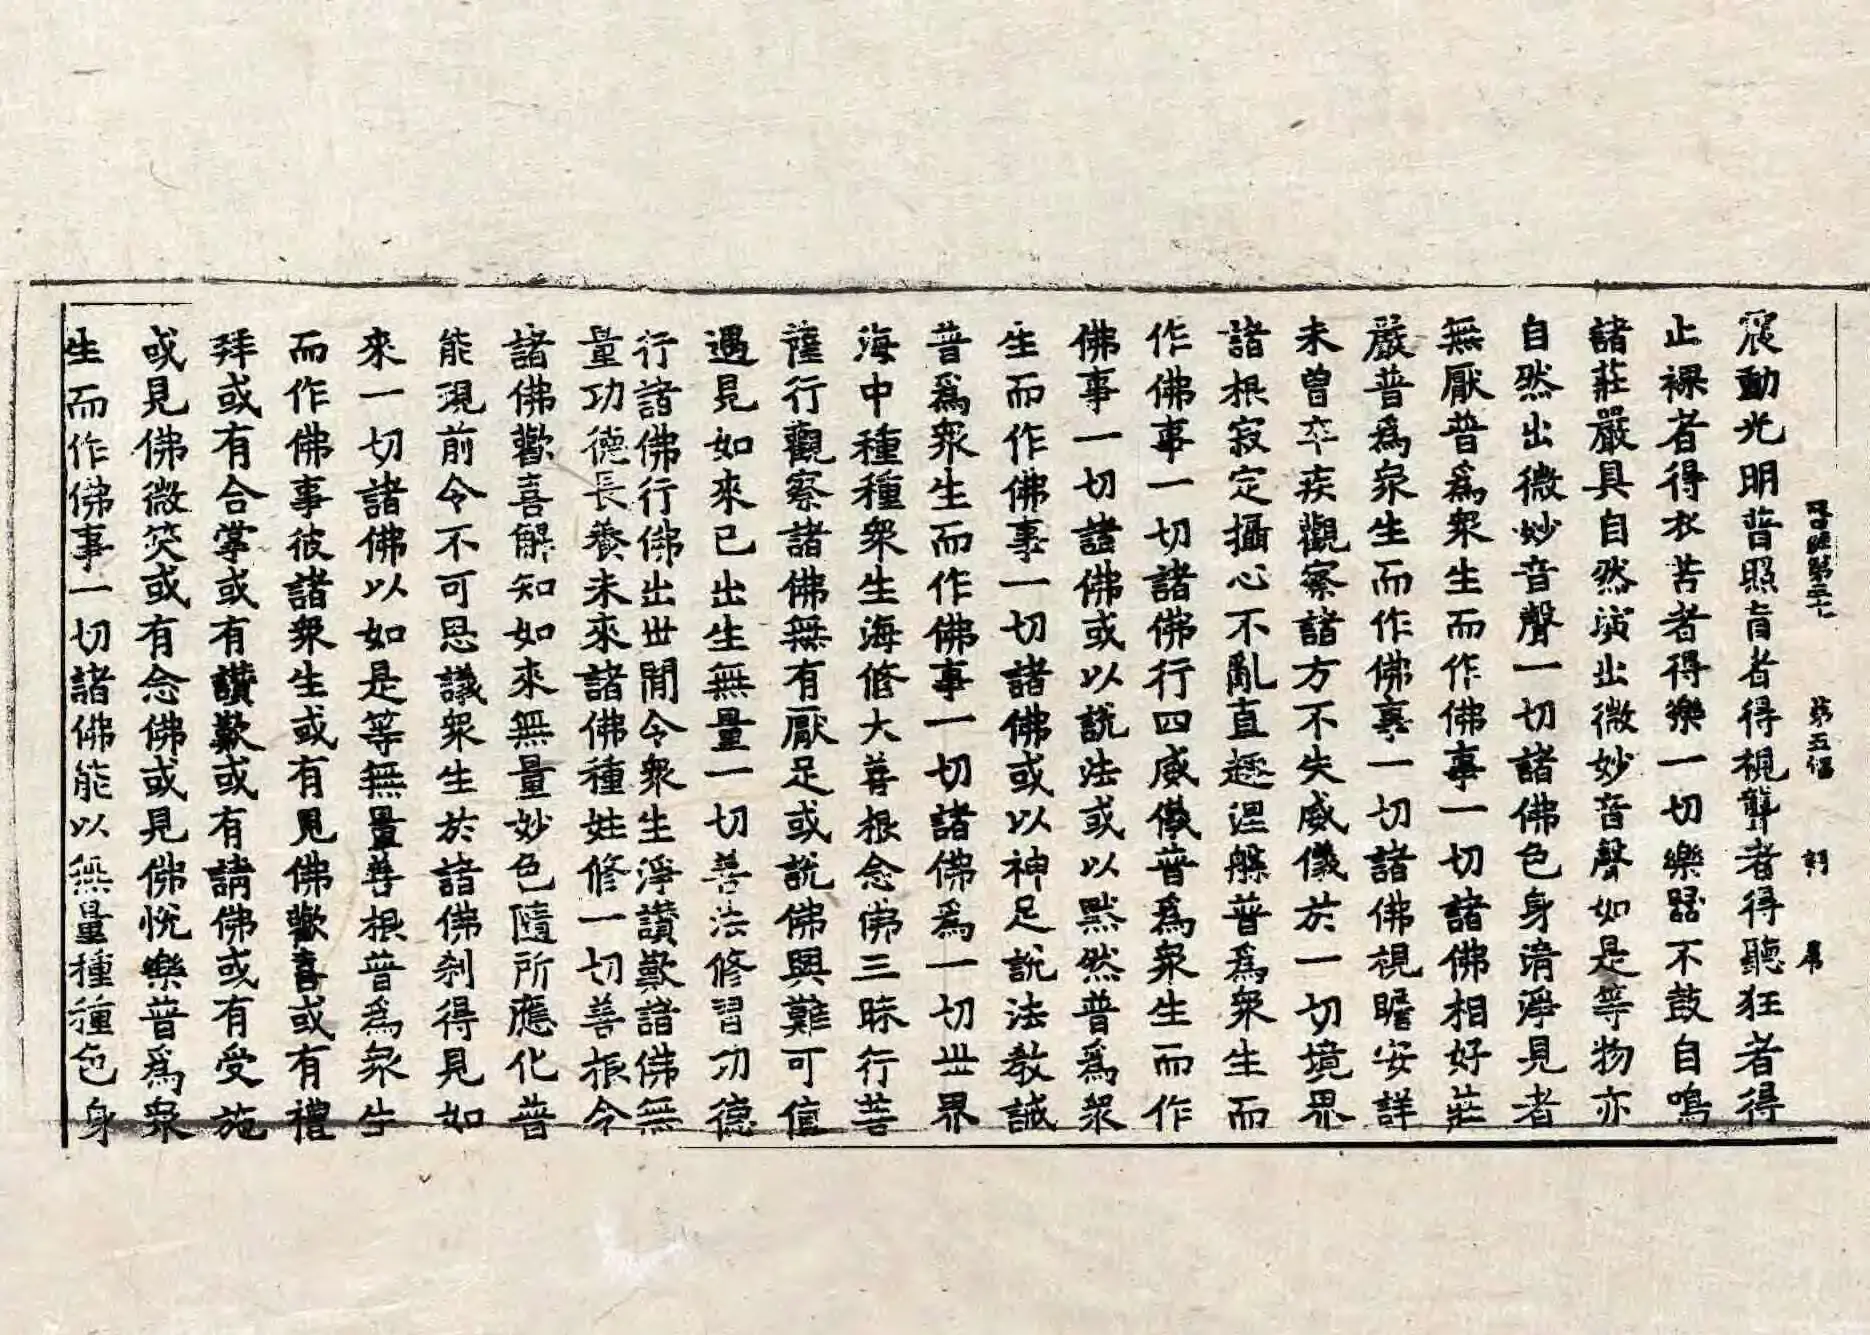 第五張
震動光明普照盲者得視聾者得聽狂者得
止裸者得衣苦者得樂一切樂器不鼓自鳴
諸莊嚴具自然演出微妙音聲如是等物亦
自然出微妙音聲一切諸佛色身清淨見者
無厭普爲衆生而作佛事一切諸佛相好莊
嚴普爲衆生而作佛事一切諸佛視瞻安詳
未曾卒疾觀察諸方不失威儀於一切境界
諸根寂定攝心不亂直趣涅槃普爲衆生而
作佛事一切諸佛行四威儀普爲衆生而作
佛事一切諸佛或以說法或以默然普爲衆
生而作佛事一切諸佛或以神足說法教誡
普爲衆生而作佛事一切諸佛爲一切世界
海中種種衆生海修大善根念佛三昧行菩
薩行觀察諸佛無有厭足或說佛興難可値
遇見如來已出生無量一切善法修習功德
行諸佛行佛出世間令衆生淨讚歎諸佛無
量功德長養未來諸佛種姓修一切善根令
諸佛歡喜解知如來無量妙色隨所應化普
能現前令不可思議衆生於諸佛刹得見如
來一切諸佛以如是等無量善根普爲衆生
而作佛事彼諸衆生或有見佛歡喜或有禮
拜或有合掌或有讚歎或有請佛或有受施
或見佛微笑或有念佛或見佛悅樂普爲衆
生而作佛事一切諸佛能以無量種種色身